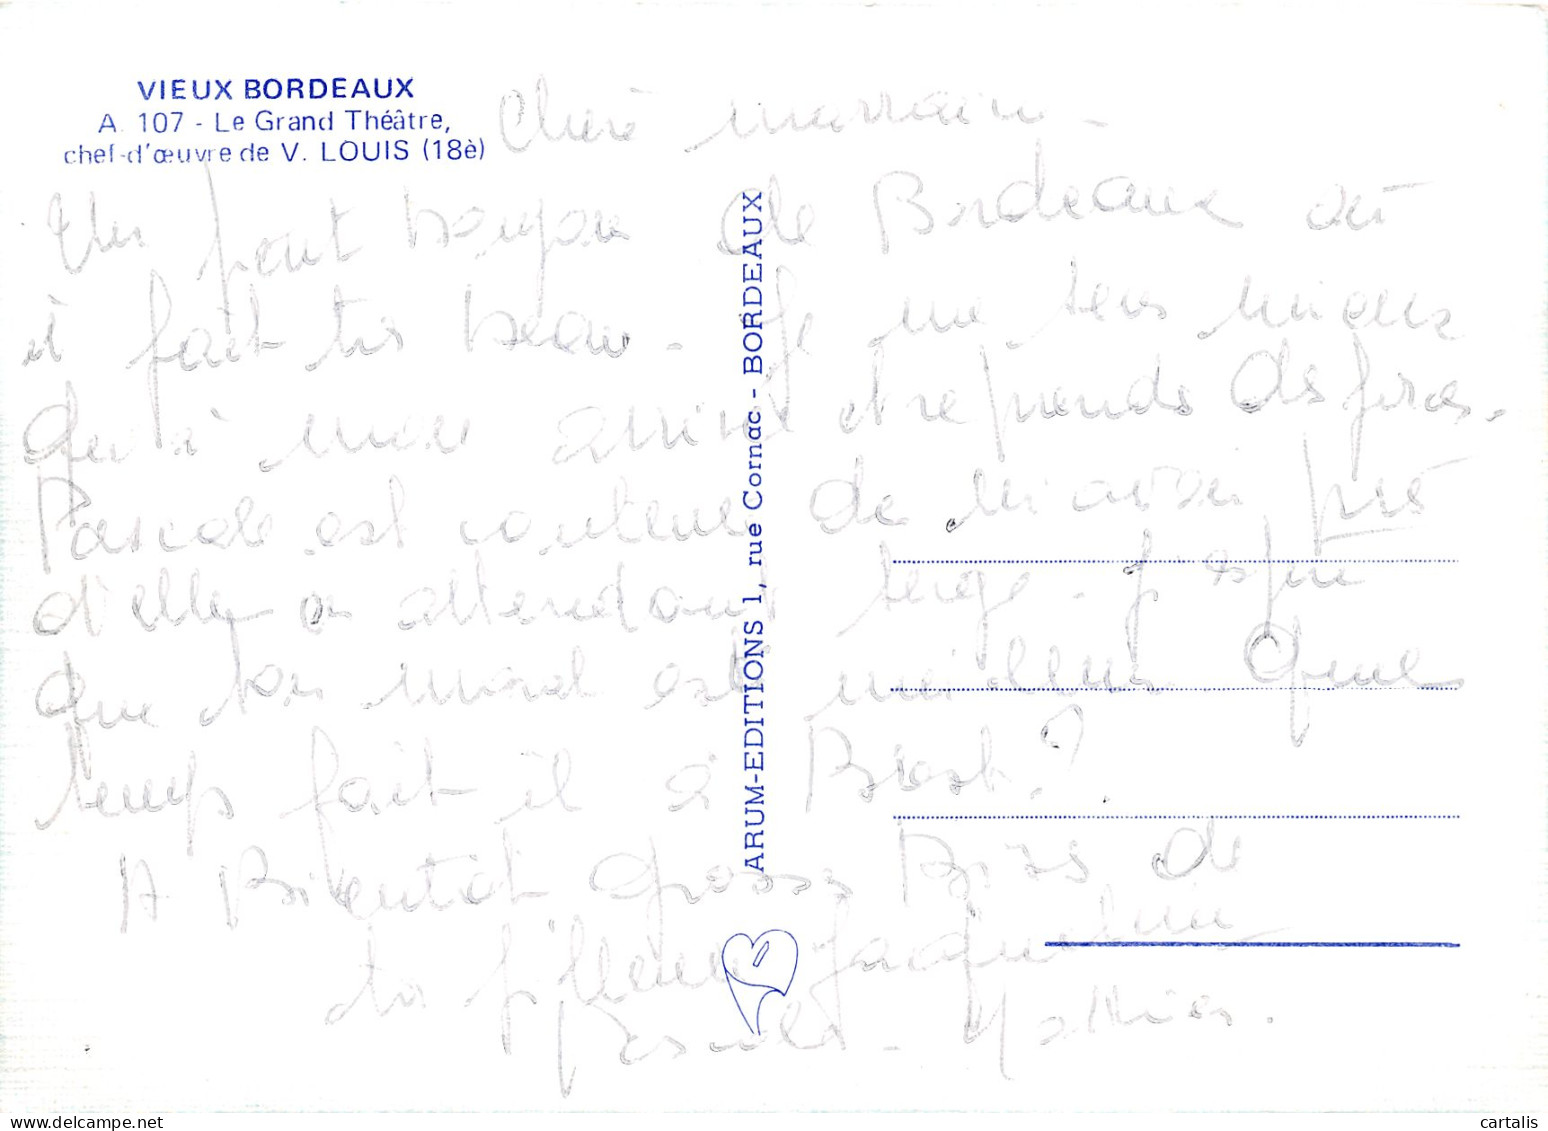 VIEUX BORDEAUX
A. 107 - Le Grand Théâtre,
chef-d'œuvre de V. LOUIS (18è)
Chère marraine -
Un petit bonjour de Bordeaux où
il fait très beau - Je me sens mieux
qu'à mon arrivée et reprends des forces.
Pascale est contente de m'avoir près
d'elle en attendant Serge - J'espère
que ton moral est meilleur. Quel
temps fait il à Brest ?
A Bientôt Grosses Bises de
ta filleule Jacqueline
Pascale - Mathias.
ARUM-EDITIONS 1, rue Cornac - BORDEAUX
cartalis